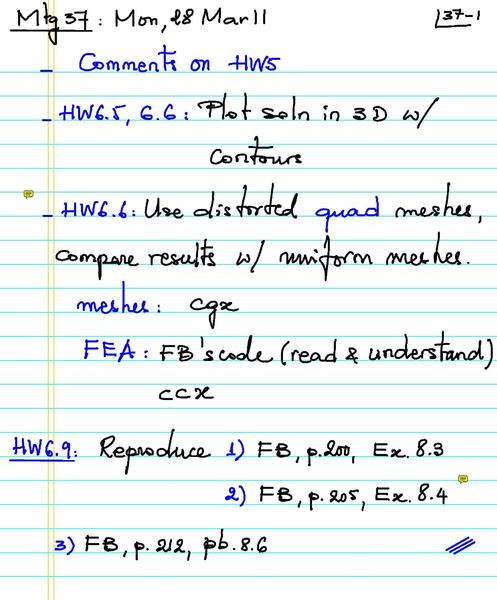 Mtg 37 : Mon, 28 Mar 11 37-1
- Comments on HW5
- HW6.5, 6.6 : Plot soln in 3D w/
contours
- HW6.6 : Use distorted quad meshes,
compare results w/ uniform meshes.
meshes : cgx
FEA : FB's code (read & understand)
ccx
HW6.9 : Reproduce 1) FB, p.200, Ex. 8.3
2) FB, p.205, Ex. 8.4
3) FB, p.212, pb. 8.6